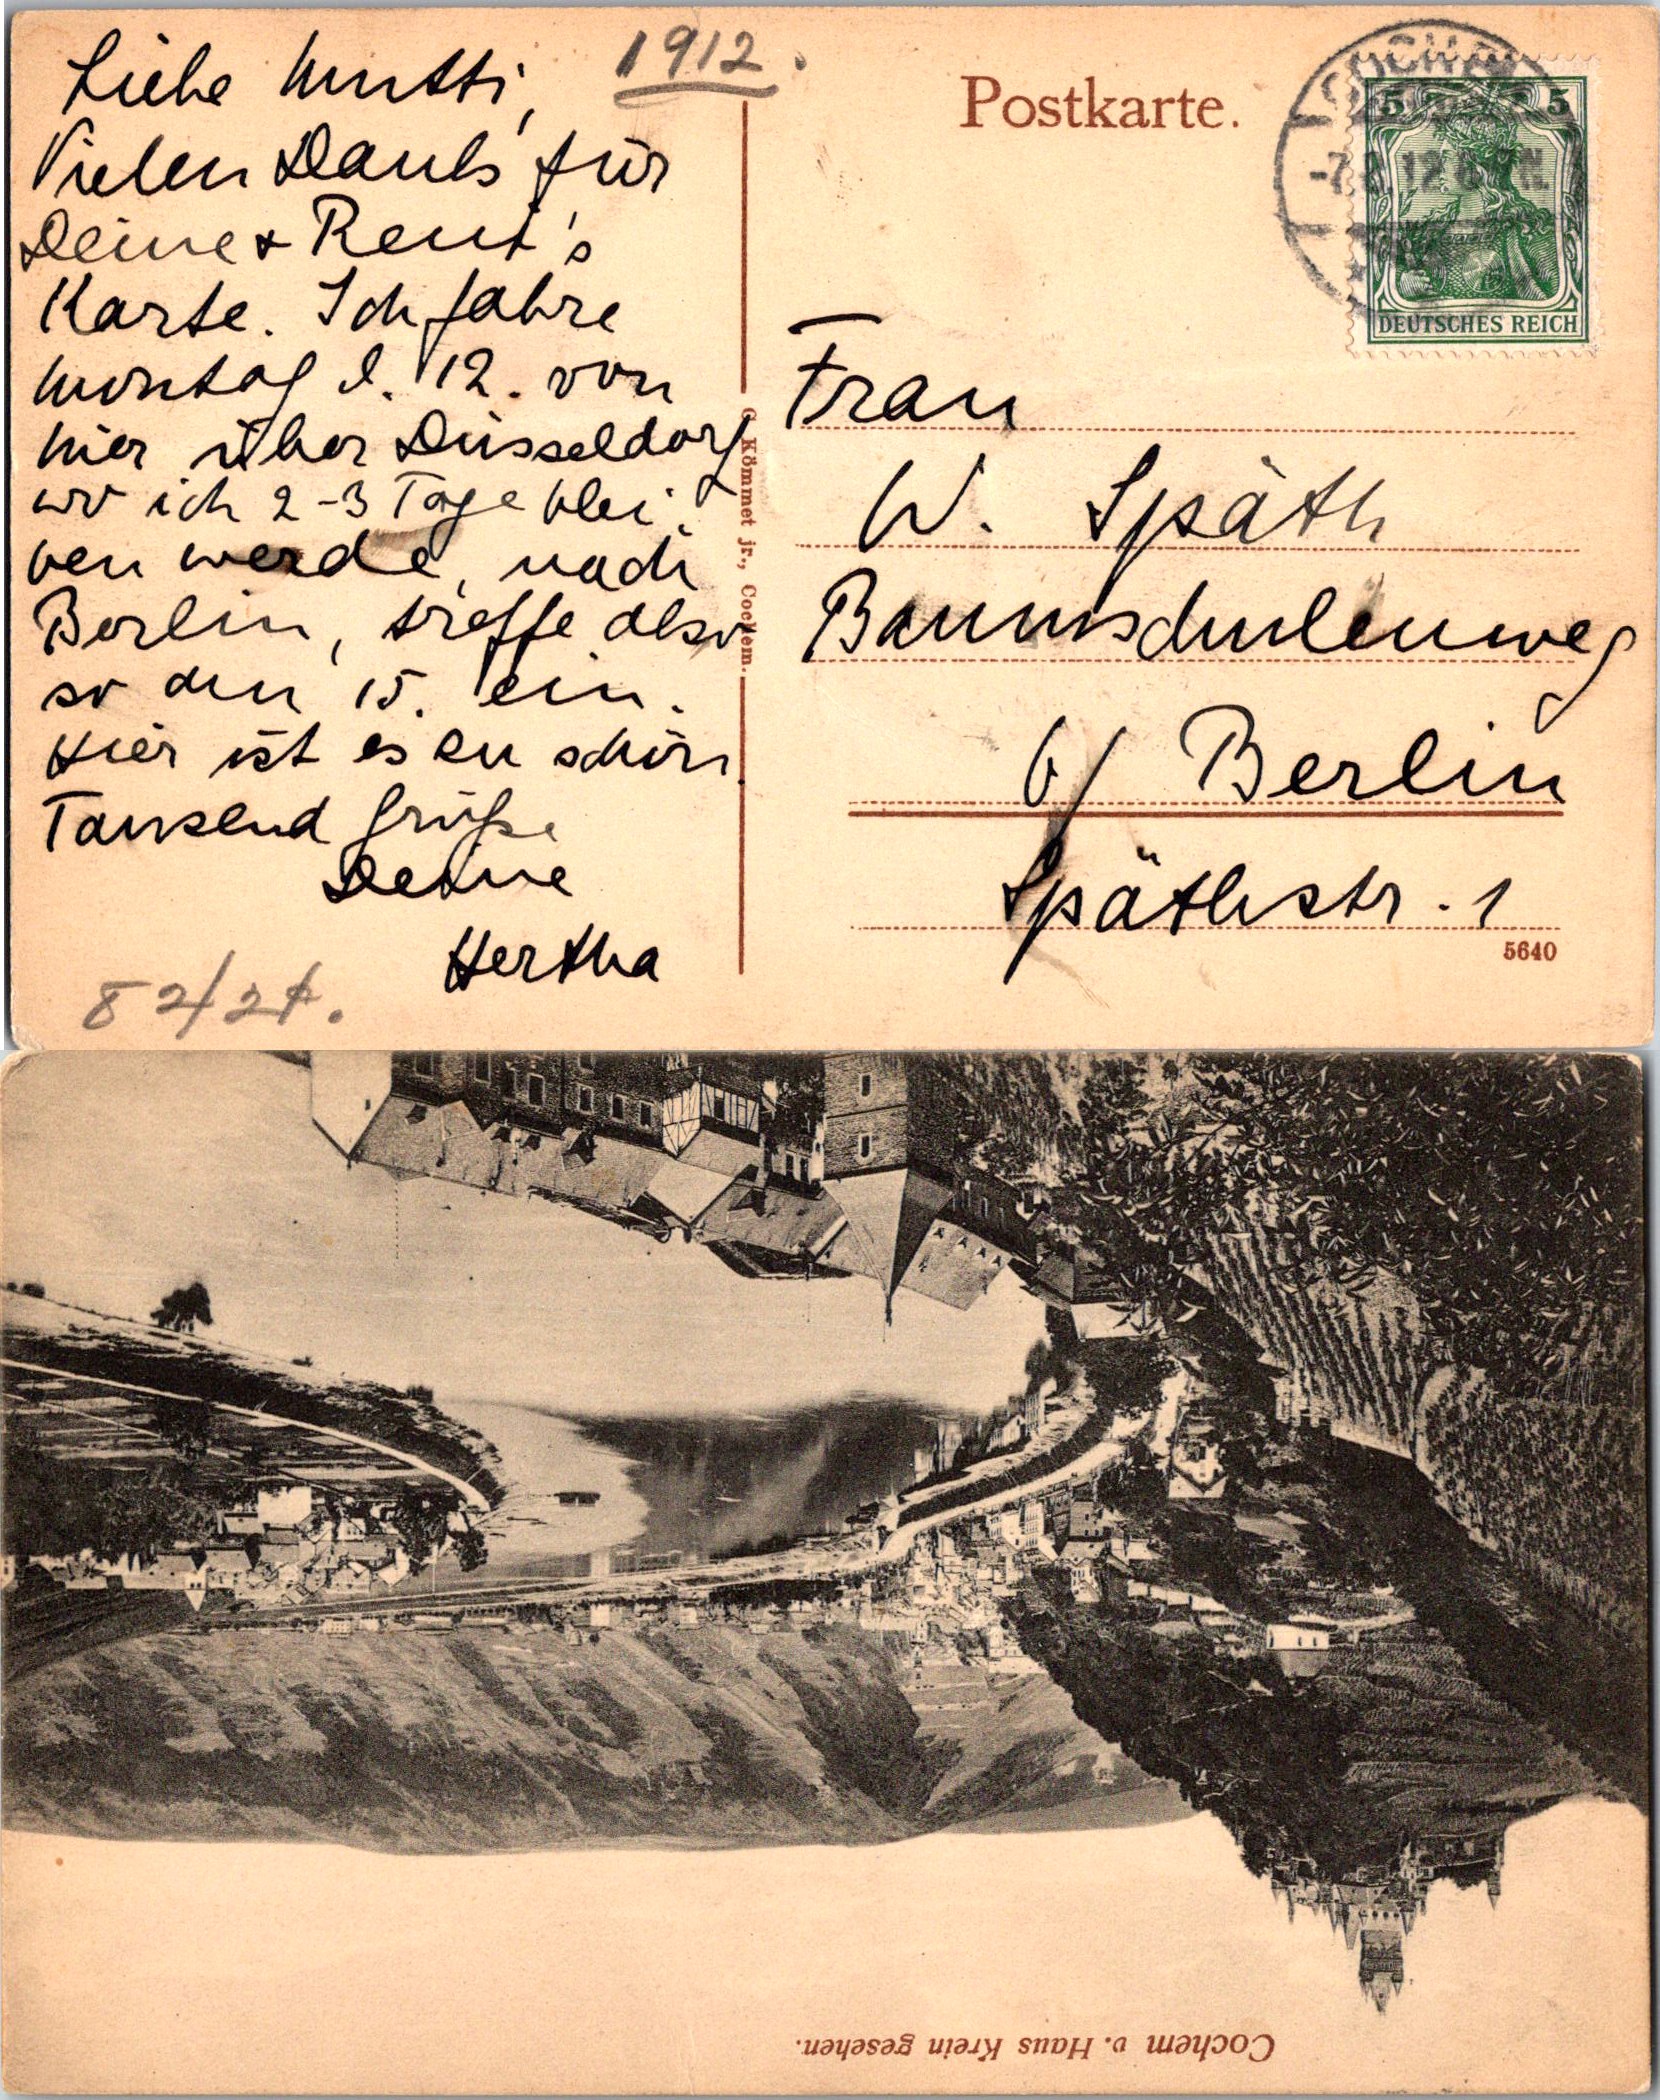 Liebe Mutti,
Vielen Dank für
Deine + Rent's
Karte. Ich fahre
Montag d. 12. von
hier über Düsseldorf
wo ich 2-3 Tage blei-
ben werde, nach
Berlin, treffe also
so den 15. ein.
Hier ist es zu schön
Tausend Grüße
Deine
Hertha
82/2t.
1912.
Postkarte.
COCHEM
12
5 5
DEUTSCHES REICH
Kömmet jr., Cochem.
Frau
W. Späth
Baumschulenweg
b/ Berlin
Späthstr. 1
5640
Cochem v. Haus Krein gesehen.